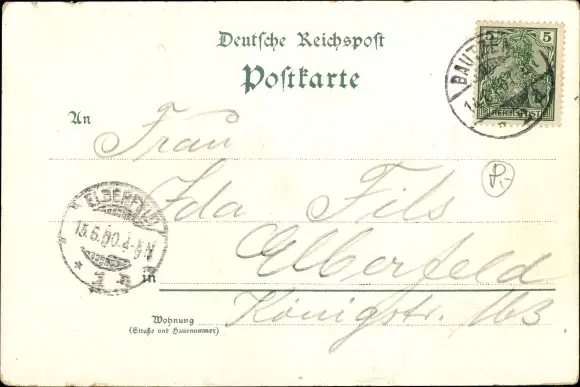 Deutsche Reichspost
Postkarte
5
BAUTZEN
REICHSPOST
An
Frau
Ida Fils
Elberfeld
ELBERFELD
15.6.00.
in
Königstr. 163
Wohnung
(Straße und Hausnummer)